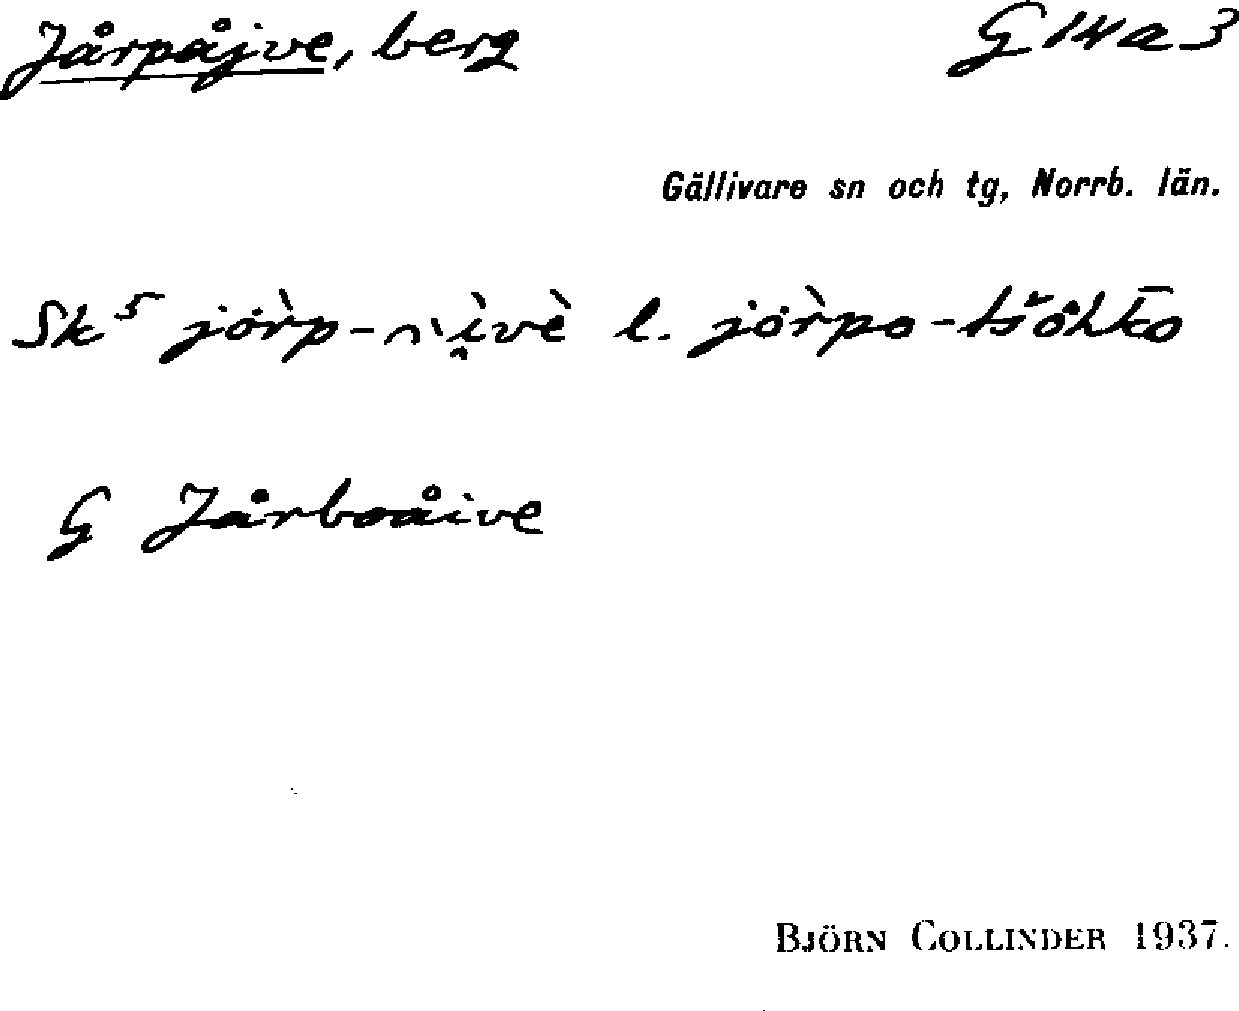 Jårpåjve, berg G 14 a 3
Gällivare sn och tg, Norrb. län.
Sk⁵ l. jȯr̀pȯ-tšȯhk̄o
G Jårboåive
BJÖRN COLLINDER 1937.